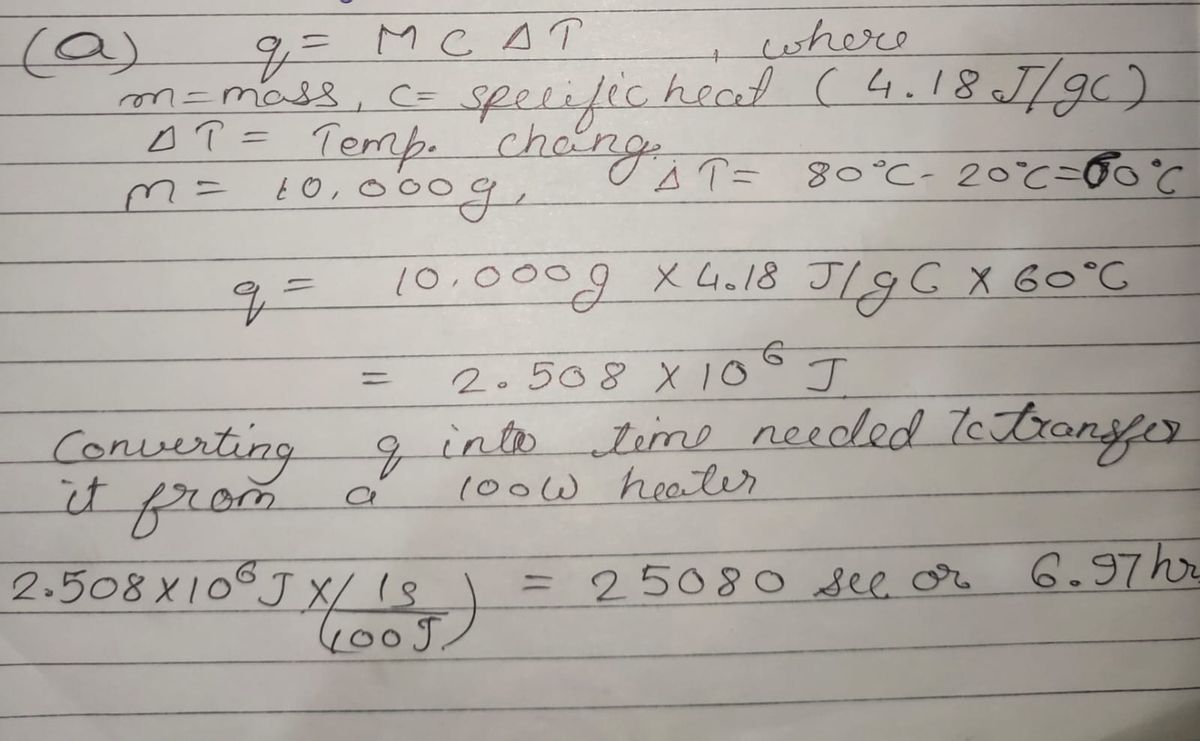 (a) q = M C Δ T , where
m = mass, C = specific heat ( 4.18 J/gC)
Δ T = Temp. chang.
m = 10,000g, Δ T = 80°C - 20°C = 60°C
q = 10,000g x 4.18 J/gC x 60°C
= 2.508 x 10⁶ J
Converting q into time needed to transfer
it from a 100W heater
2.508 x 10⁶ J x (1s/100J) = 25080 sec or 6.97 hr